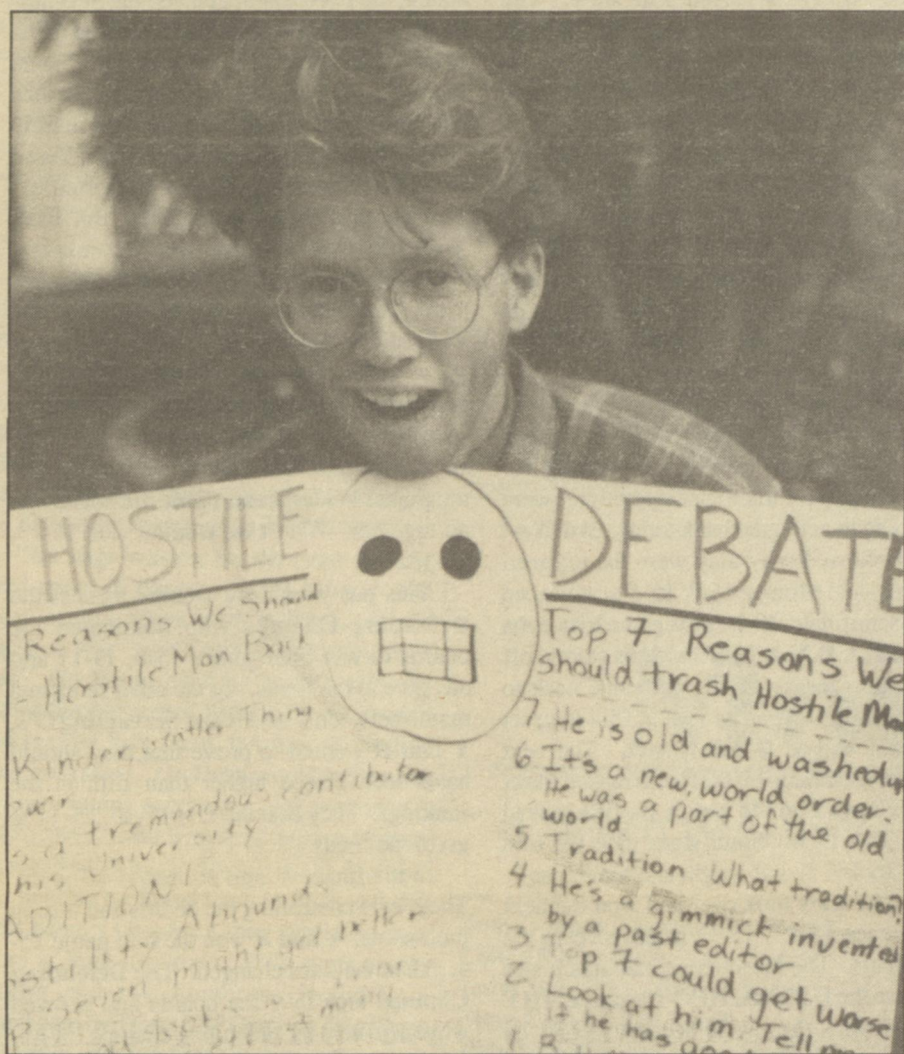 HOSTILE
Reasons We Should
- Hostile Man Back
Kinder, Gentler Thing
a tremendous contributor
his University
ADITION!
stility Abounds
Seven might get better
DEBATE
Top 7 Reasons We
should trash Hostile Ma
7 He is old and washedup
6 It's a new, world order.
He was a part of the old
world
5 Tradition What tradition?
4 He's a gimmick invented
by a past editor
3 Top 7 could get worse
2 Look at him. Tell m
if he has
1